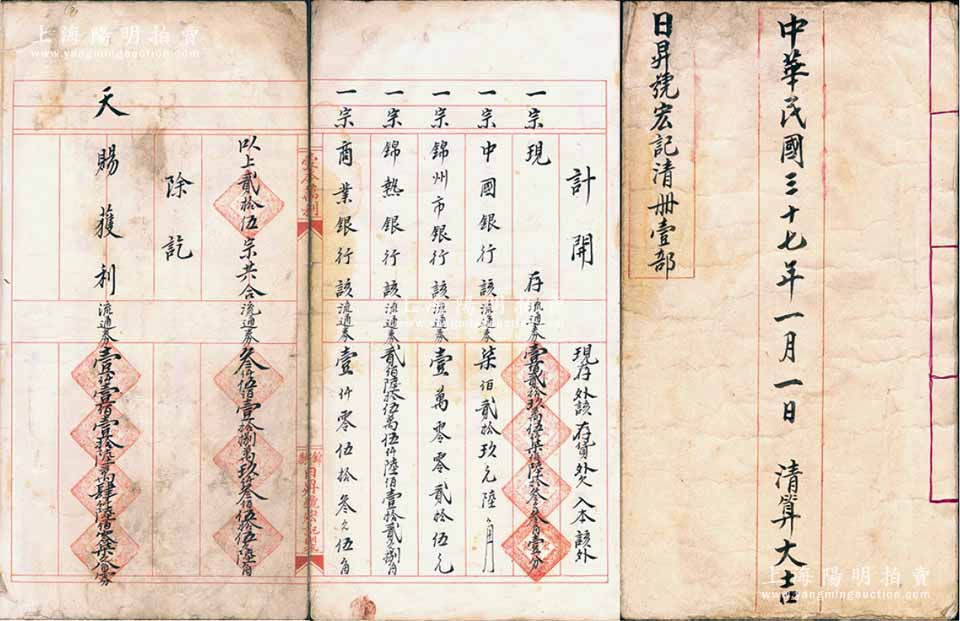 中華民國三十七年一月一日 清算大吉
日昇號宏記清册壹部
計開
現存 外該 存貨 外欠 入本 該外
一宗 現存 流通券
一宗 中國銀行該流通券柒佰貳拾玖元陸角
一宗 錦州市銀行該流通券壹萬零零貳拾伍元
一宗 錦熱銀行該流通券貳佰陸拾伍萬伍仟陸佰壹拾貳元捌角
一宗 商業銀行該流通券壹仟零伍拾叁元伍角
以上貳拾伍宗共合流通券叁仟伍佰壹拾捌萬玖仟叁佰伍拾伍元陸角
除訖
天賜獲利流通券
上海陽明拍賣
www.yangmingauction.com
上海陽明拍賣
www.yangmingauction.com
上海陽明拍賣
www.yangmingauction.com